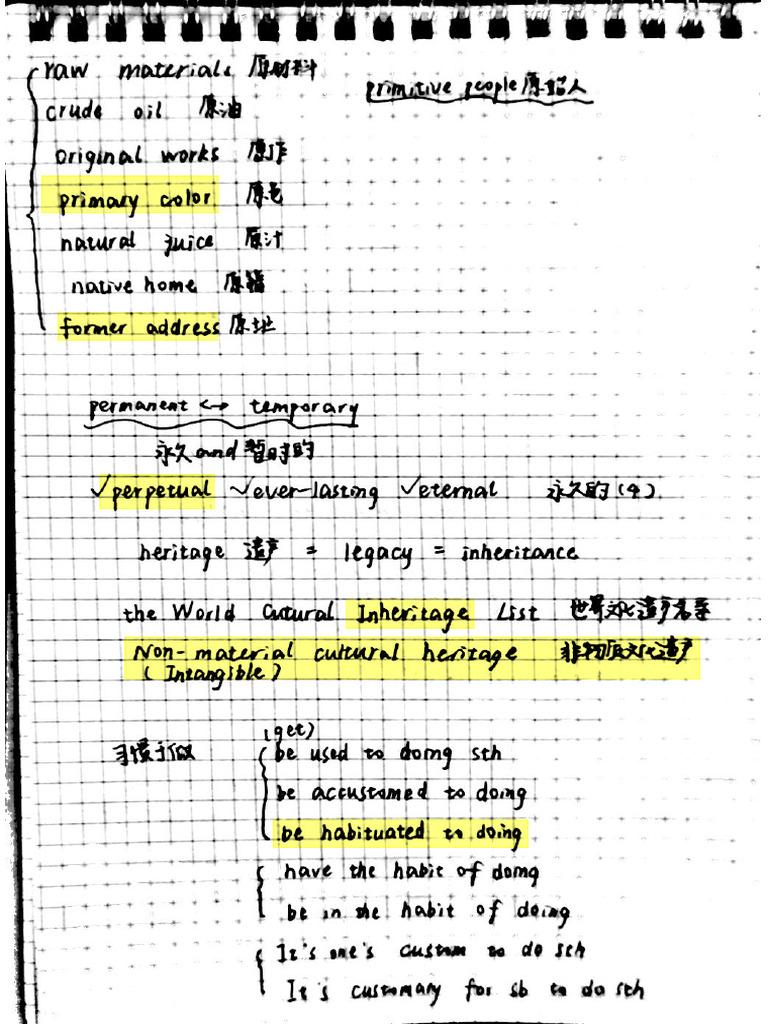 raw materials 原材料
primitive people 原始人
crude oil 原油
original works 原作
primary color 原色
natural juice 原汁
native home 原籍
former address 原址
permanent <-> temporary
永久and暂时的
✓perpetual ✓ever-lasting ✓eternal 永久的(4)
heritage 遗产 = legacy = inheritance
the World Cutural Inheritage List 世界文化遗产名录
Non-material cultural heritage 非物质文化遗产
(Intangible)
(get)
习惯于做 be used to doing sth
be accustomed to doing
be habituated to doing
have the habit of doing
be in the habit of doing
It's one's custom to do sth
It's customary for sb to do sth